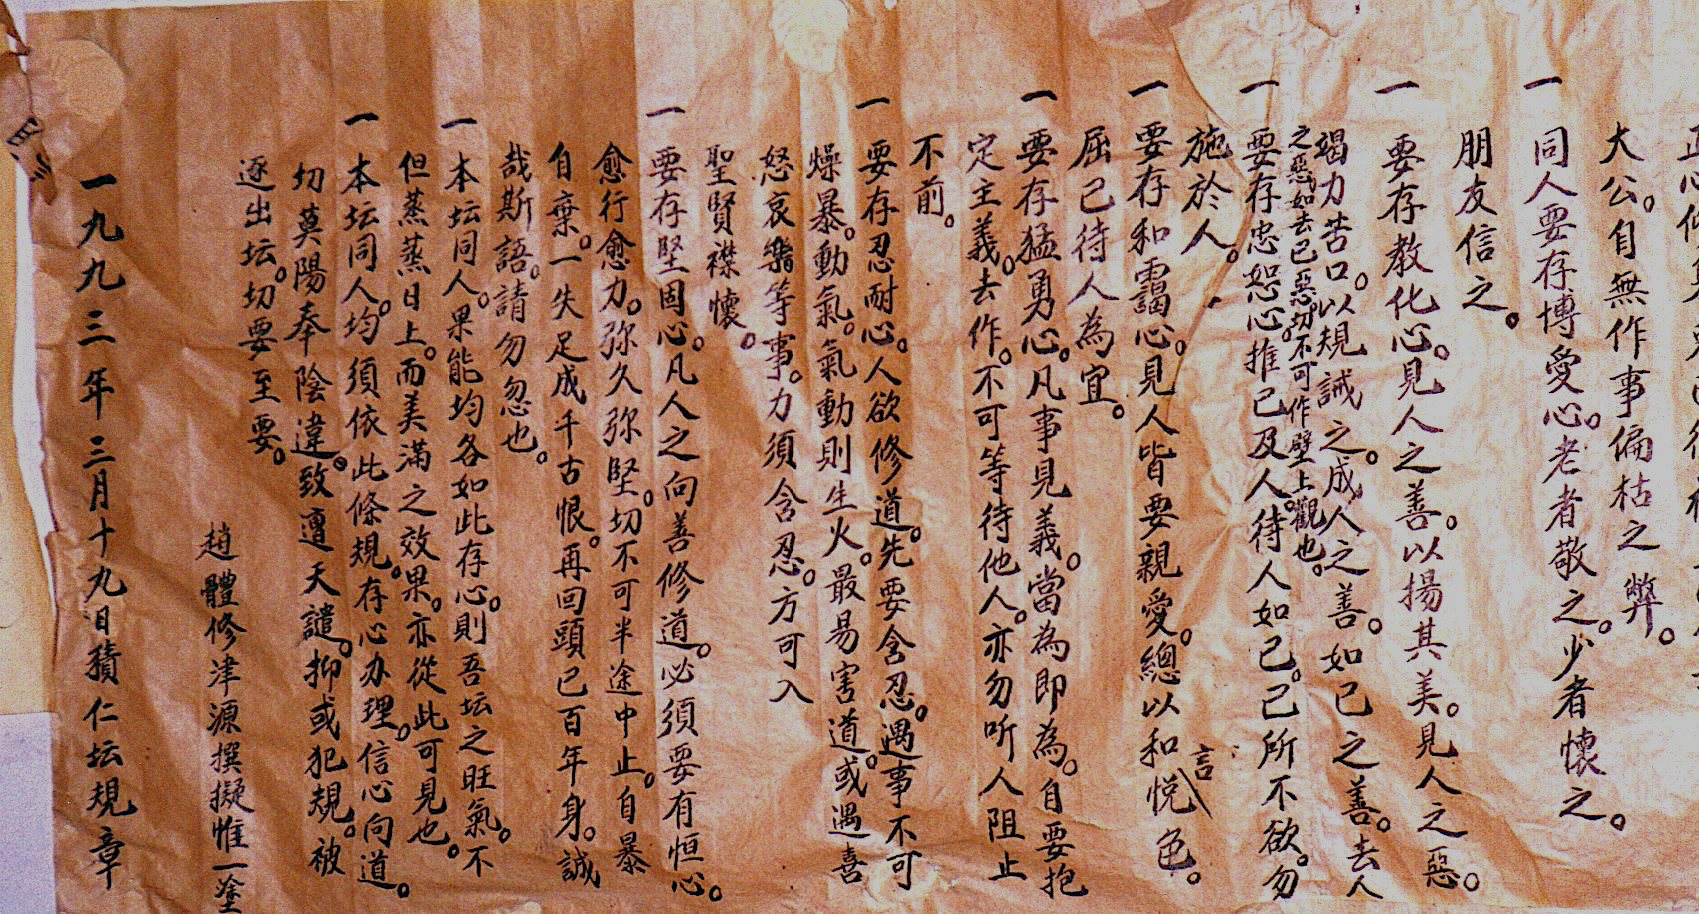 大公。自無作事偏枯之弊。
一同人要存博愛心。老者敬之。少者懷之。
朋友信之。
一要存教化心。見人之善。以揚其美。見人之惡。
竭力苦口。以規誡之。成人之善。如己之善。去人
之惡如去己惡。切不可作壁上觀也。
一要存忠恕心。推己及人。待人如己。己所不欲。勿
施於人。
一要存和靄心。見人皆要親愛。總以和悅言色。
屈己待人為宜。
一要存猛勇心。凡事見義。當為即為。自要抱
定主義。去作。不可等待他人。亦勿听人阻止
不前。
一要存忍耐心。人欲修道。先要含忍。遇事不可
燥暴。動氣。氣動則生火。最易害道。或遇喜
怒哀樂等事。力須含忍。方可入
聖賢襟懷。
一要存堅固心。凡人之向善修道。必須要有恒心。
愈行愈力。弥久弥堅。切不可半途中止。自暴
自棄。一失足成千古恨。再回頭已百年身。誠
哉斯語。請勿忽也。
一本坛同人。果能均各如此存心。則吾坛之旺氣。不
但蒸蒸日上。而美滿之效果。亦從此可見也。
一本坛同人。均須依此條規。存心办理。信心向道。
切莫陽奉陰違。致遭天譴。抑或犯規。被
逐出坛。切要至要。
趙體修津源撰擬惟一塗
一九九三年三月十九日積仁坛規章